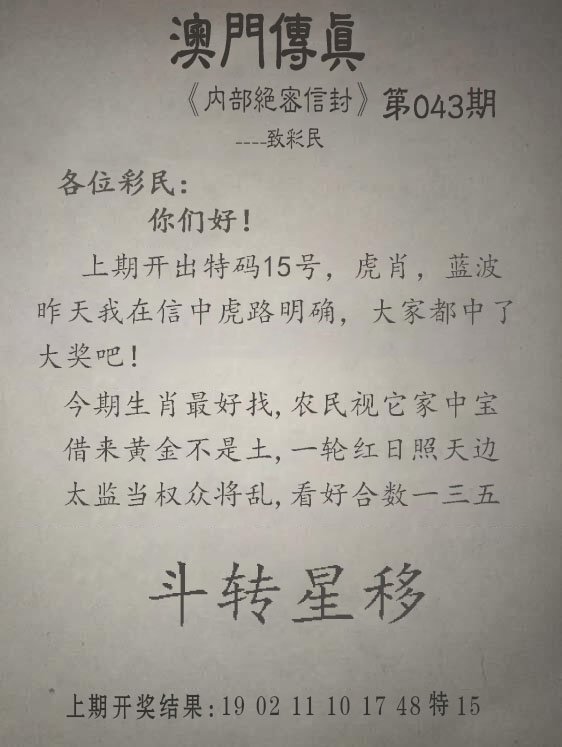 澳門傳眞
《内部絕密信封》第043期
----致彩民
各位彩民：
你们好！
上期开出特码15号，虎肖，蓝波
昨天我在信中虎路明确，大家都中了
大奖吧！
今期生肖最好找,农民视它家中宝
借来黄金不是土,一轮红日照天边
太监当权众将乱,看好合数一三五
斗转星移
上期开奖结果:19 02 11 10 17 48 特 15